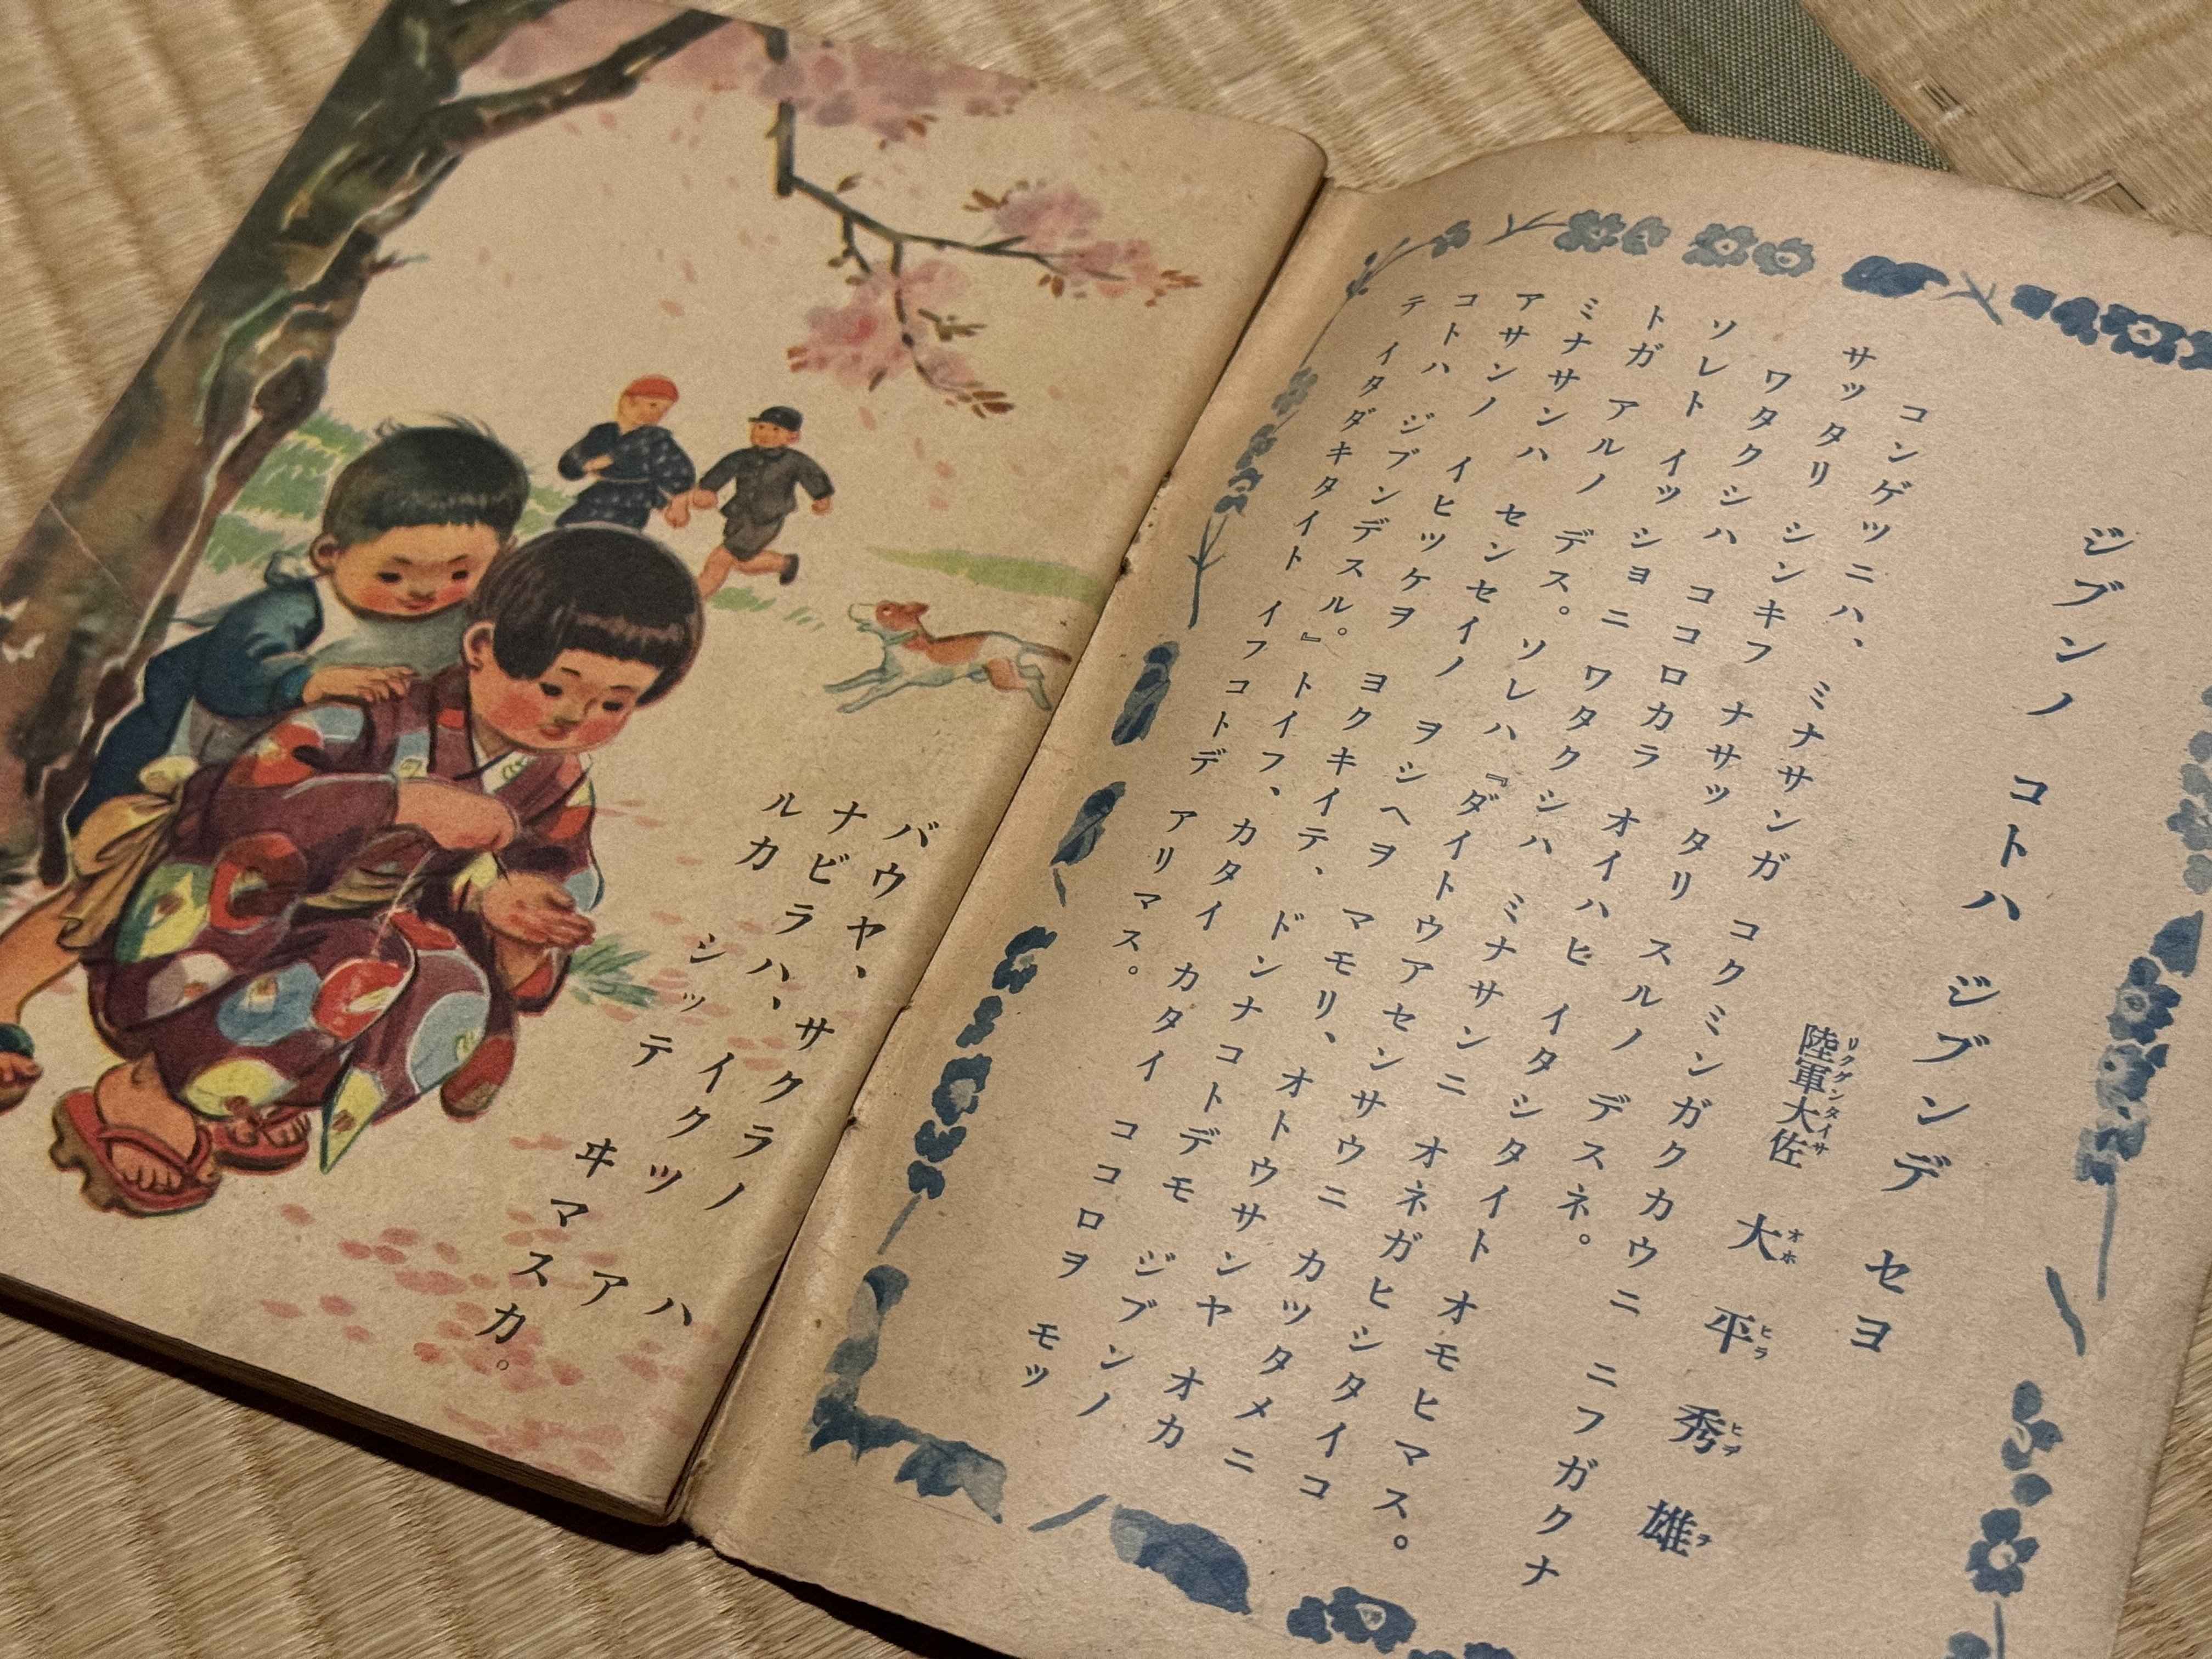 ジブンノ コトハ ジブンデ セヨ
陸軍大佐 大平秀雄
リクグンタイサ オホ ヒラ ヒデ ヲ
コンゲツニハ、ミナサンガ コクミンガクカウニ ニフガクナ
サッタリ シンキフ ナサッタリ スルノ デスネ。
ワタクシハ ココロカラ オイハヒ イタシタイト オモヒマス。
ソレト イッショニ ワタクシハ ミナサンニ オネガヒシタイコ
トガ アルノ デス。ソレハ、『ダイトウアセンサウニ カツタメニ
ミナサンハ センセイノ ヲシヘヲ マモリ、オトウサンヤ オカ
アサンノ イヒツケヲ ヨクキイテ、ドンナコトデモ ジブンノ
コトハ ジブンデスル。』トイフ、カタイ カタイ ココロヲ モッ
テ イタダキタイト イフコトデ アリマス。
バウヤ、サクラノ ハ
ナビラハ、イクツ ア
ルカ シッテ ヰマスカ。